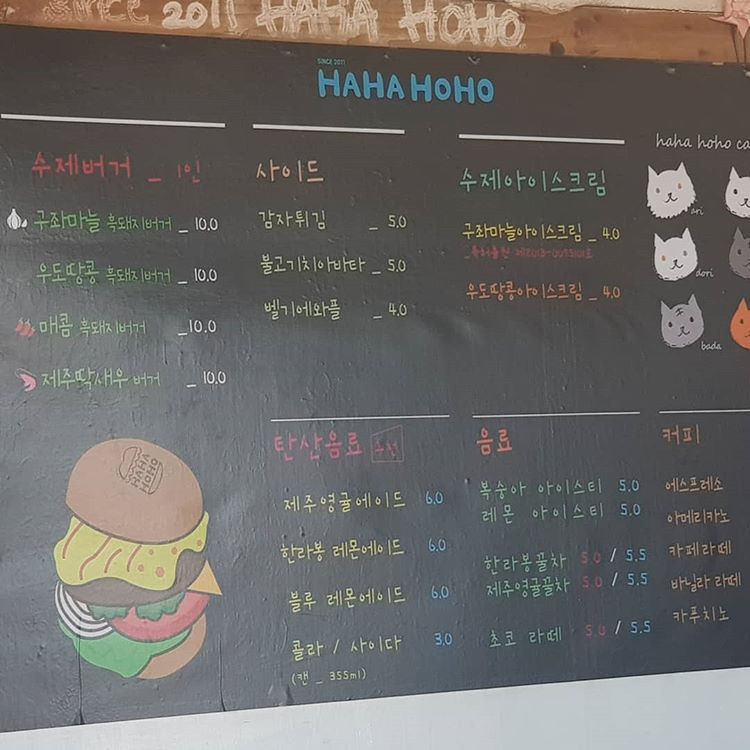 since 2011 HAHA HOHO
SINCE 2011
HAHA HOHO
수제버거 _ 1인
구좌마늘 흑돼지버거 _ 10.0
우도땅콩 흑돼지버거 _ 10.0
매콤 흑돼지버거 _ 10.0
제주딱새우 버거 _ 10.0
사이드
감자튀김 _ 5.0
불고기치아바타 _ 5.0
벨기에와플 _ 4.0
수제아이스크림
구좌마늘아이스크림 _ 4.0
우도땅콩아이스크림 _ 4.0
haha hoho ca
ari
dori
bada
HAHA
HOHO
탄산음료
제주영귤에이드 6.0
한라봉 레몬에이드 6.0
블루 레몬에이드 6.0
콜라 / 사이다 3.0
(캔 _ 355ml)
음료
복숭아 아이스티 5.0
레몬 아이스티 5.0
한라봉꿀차 5.0 / 5.5
제주영귤꿀차 5.0 / 5.5
초코 라떼 5.0 / 5.5
커피
에스프레소
아메리카노
카페라떼
바닐라 라떼
카푸치노